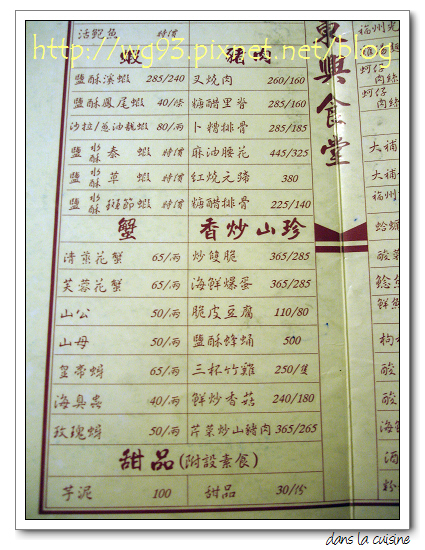 活鮑魚 特價
http://wg93.pixnet.net/blog
蝦
鹽酥溪蝦 285/240
鹽酥鳳尾蝦 40/條
沙拉/蔥油龍蝦 80/兩
鹽水酥泰蝦 特價
鹽水酥草蝦 特價
鹽水酥斑節蝦 特價
蟹
清蒸花蟹 65/兩
芙蓉花蟹 65/兩
山公 50/兩
山母 50/兩
皇帝蟳 65/兩
海臭蟲 40/兩
玫瑰蟳 50/兩
豬肉
叉燒肉 260/160
糖醋里脊 285/160
卜糟排骨 285/185
麻油腰花 445/325
紅燒元蹄 380
糖醋排骨 225/140
香炒山珍
炒雙脆 365/285
海鮮螺蛋 365/285
脆皮豆腐 110/80
鹽酥蜂蛹 500
三杯竹雞 250/隻
鮮炒香菇 240/180
芹菜炒山豬肉 365/265
甜品(附設素食)
芋泥 100
甜品 30/份
東興食堂
福州
蚵仔肉絲
蚵仔肉絲
大補
大補
福州
蛤蜊
酸菜
鯰魚
鮮魚
枸
酸
酸
海
酒
粉
dans la cuisine